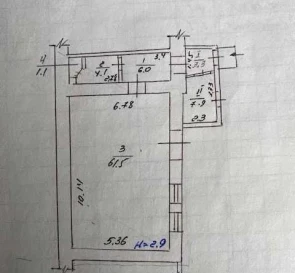 4
1.1
2
4.1
1
6.0
3.4
I
2.3
II
7.9
2.3
6.78
3
61.5
10.14
5.36
H=2.9